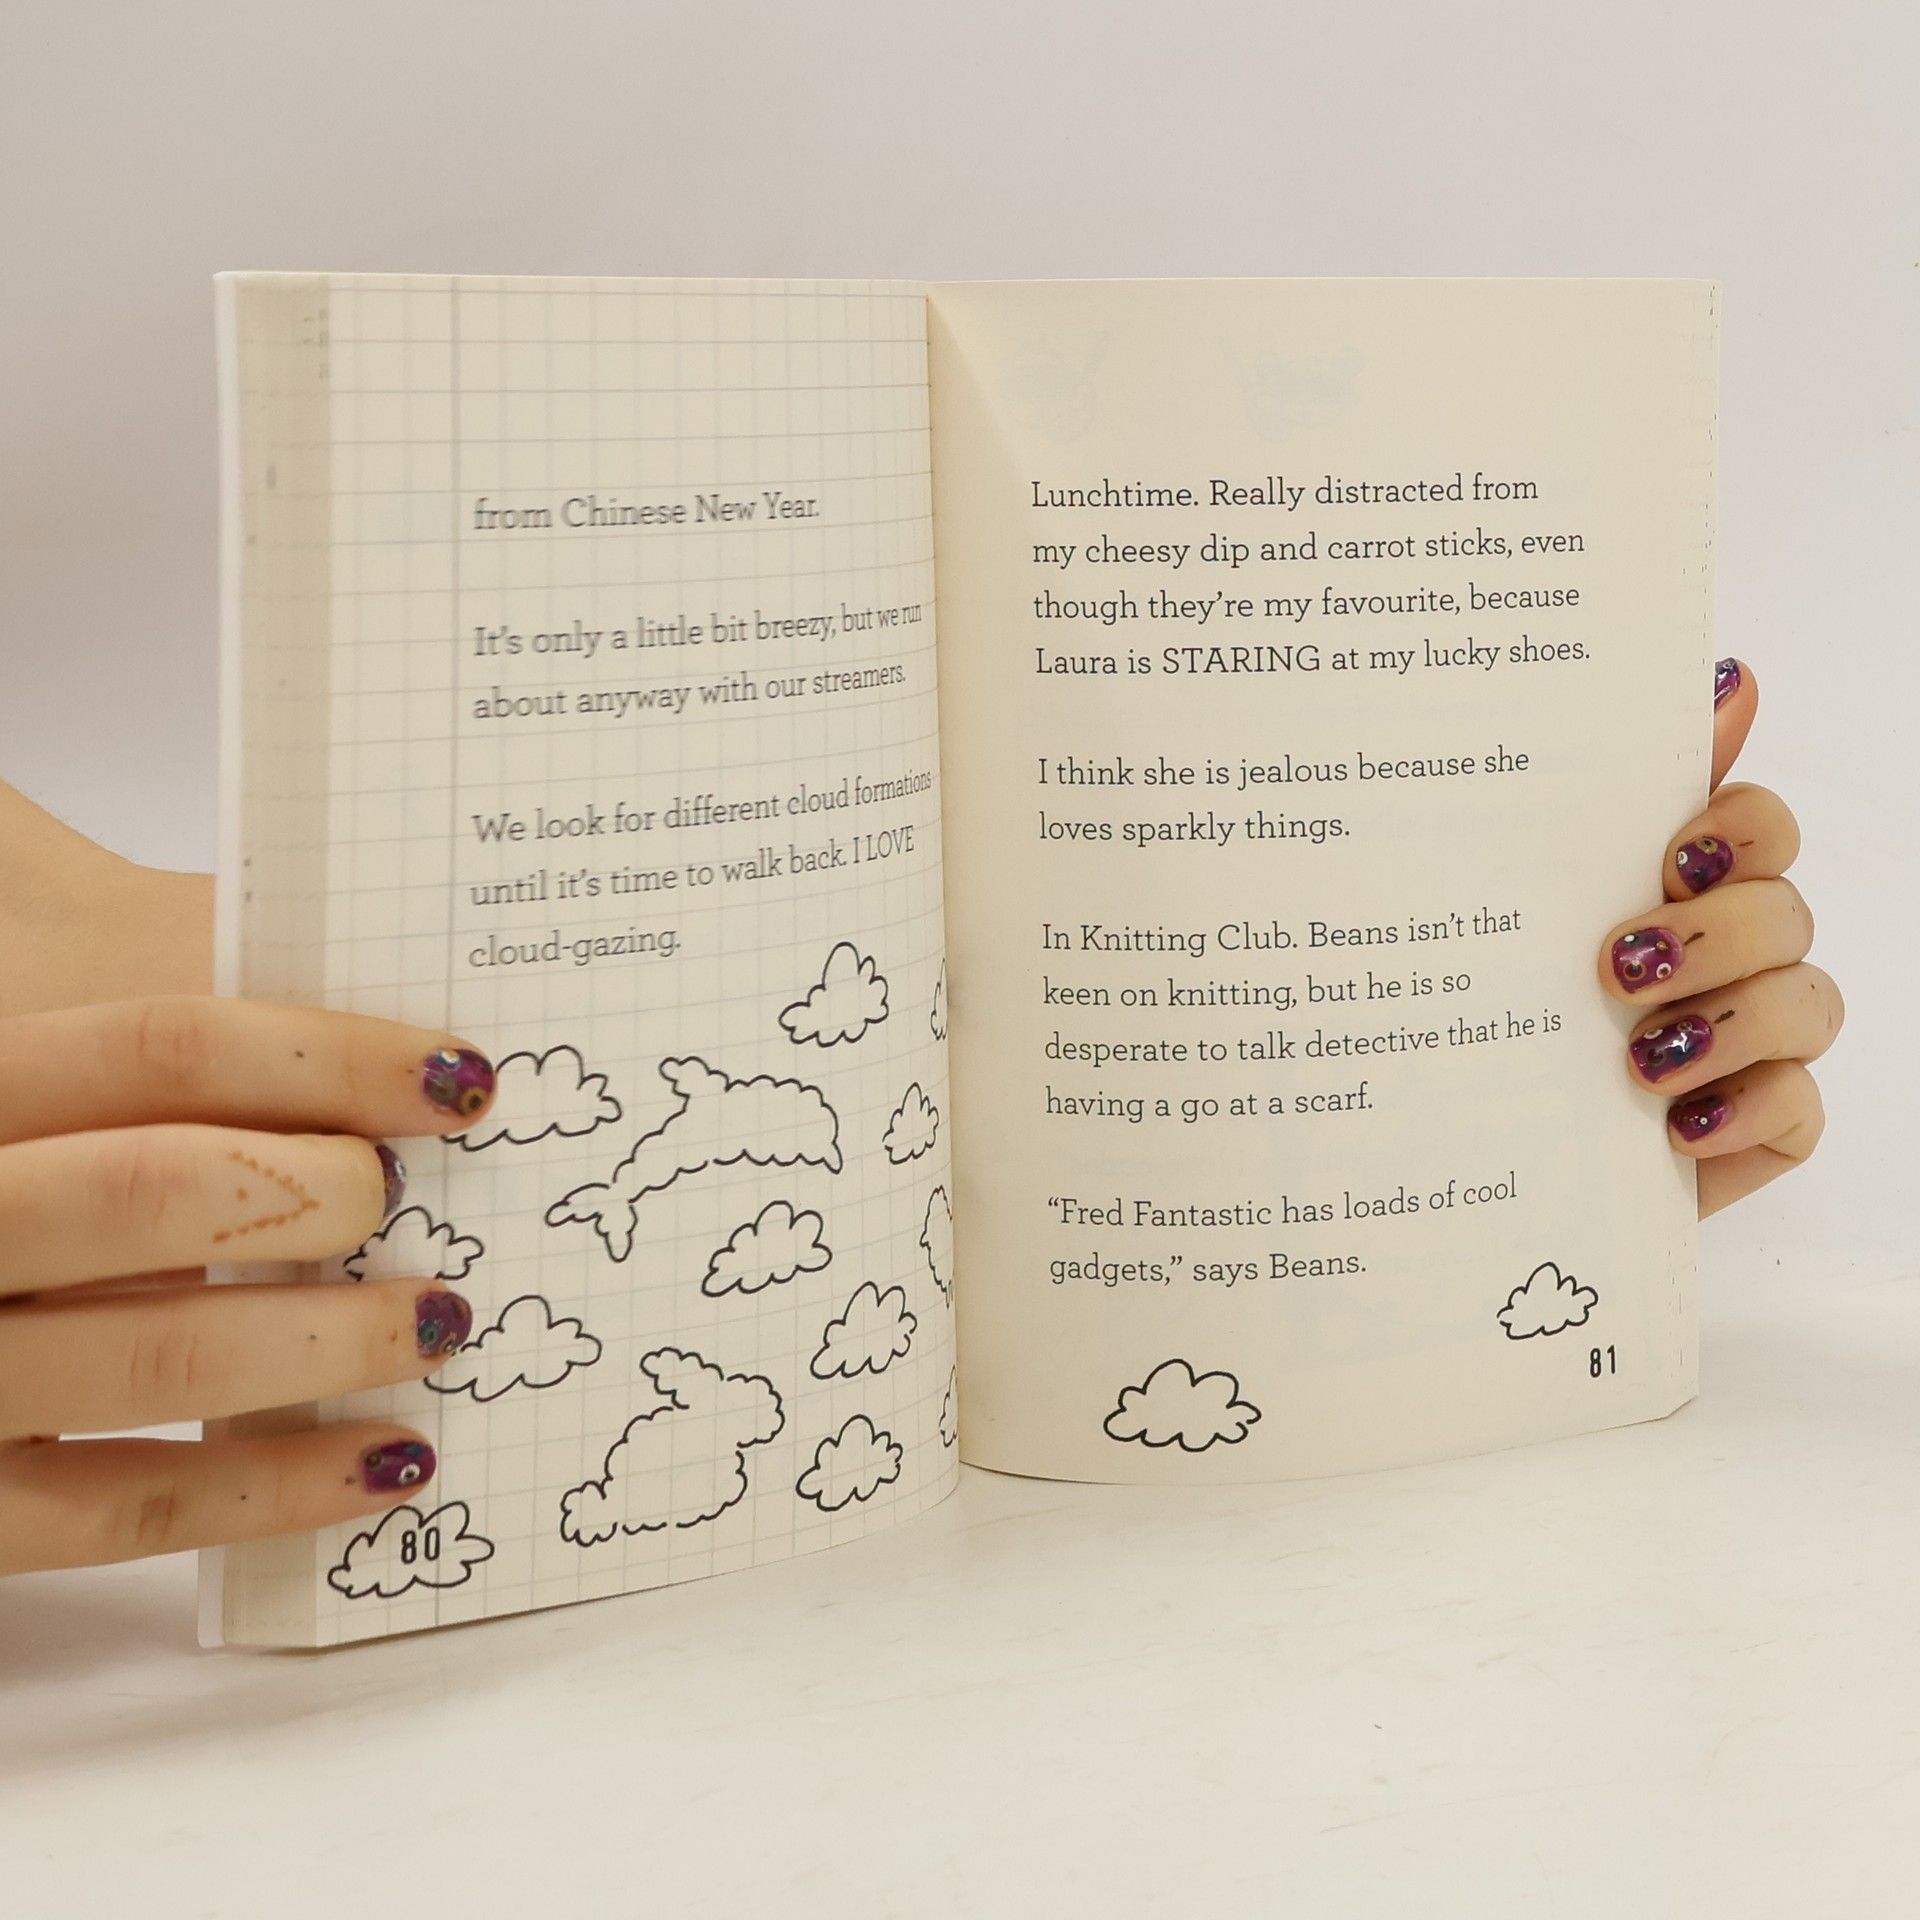 from Chinese New Year.
It's only a little bit breezy, but we run
about anyway with our streamers.
We look for different cloud formations
until it's time to walk back. I LOVE
cloud-gazing.
80
Lunchtime. Really distracted from
my cheesy dip and carrot sticks, even
though they're my favourite, because
Laura is STARING at my lucky shoes.
I think she is jealous because she
loves sparkly things.
In Knitting Club. Beans isn't that
keen on knitting, but he is so
desperate to talk detective that he is
having a go at a scarf.
“Fred Fantastic has loads of cool
gadgets,” says Beans.
81